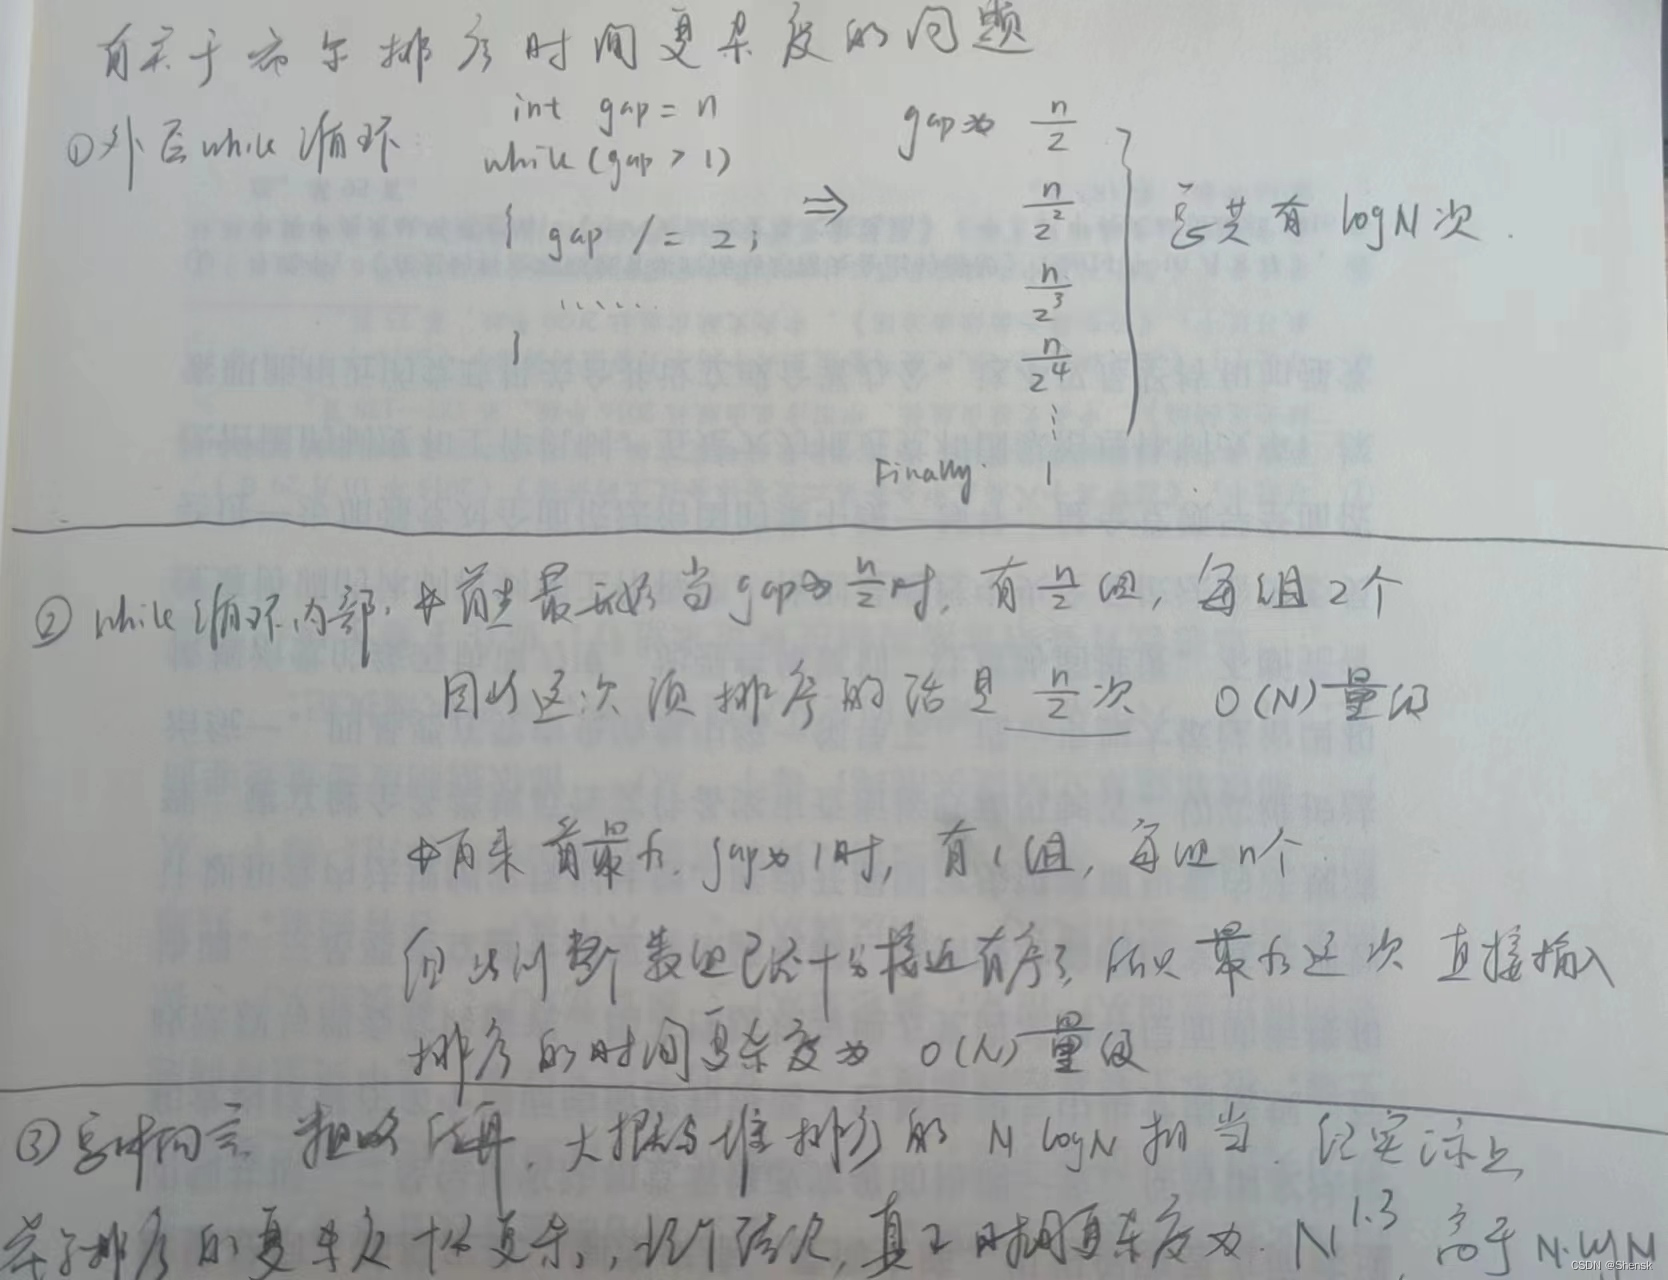 有关于希尔排序时间复杂度的问题
①外层while循环
int gap = n
while (gap > 1)
{
gap /= 2;
......
}
⇒
gap为 n/2
n/2^2
n/2^3
n/2^4
⋮
Finally. 1
总共有 logN 次.
②while循环内部. 首先最开始当gap为 n/2 时, 有 n/2 组, 每组2个
因此这次预排序的话是 n/2 次 O(N)量级
再来看最后. gap为1时, 有1组, 每组n个.
但此时整个数组已经十分接近有序了, 所以最后这次直接插入
排序的时间复杂度为 O(N)量级
③总体而言, 粗略估算, 大概与堆排序的 N logN 相当. 但实际上
希尔排序的复杂度十分复杂, 记个结论, 真正时间复杂度为. N^1.3, 高于N·logN
CSDN @Shensk